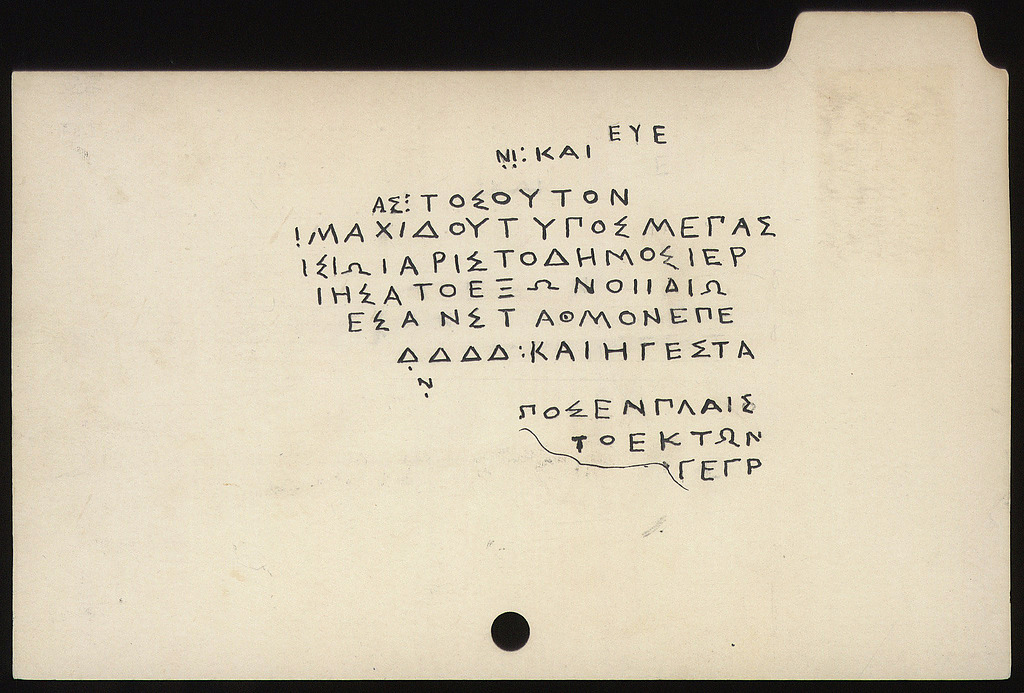 ΕΥΕ
ΝΙ:ΚΑΙ
ΑΣ⋮ΤΟΣΟΥΤΟΝ
ΙΜΑΧΙΔΟΥΤΥΠΟΣΜΕΓΑΣ
ΙΣΙΩΙΑΡΙΣΤΟΔΗΜΟΣΙΕΡ
ΙΗΣΑΤΟΕΞΩΝΟΙΙΔΙΩ
ΕΣΑΝΣΤΑΘΜΟΝΕΠΕ
ΔΔΔΔ:ΚΑΙΗΓΕΣΤΑ
Ν
ΠΟΣΕΝΠΛΑΙΣ
ΤΟΕΚΤΩΝ
ΓΕΓΡ